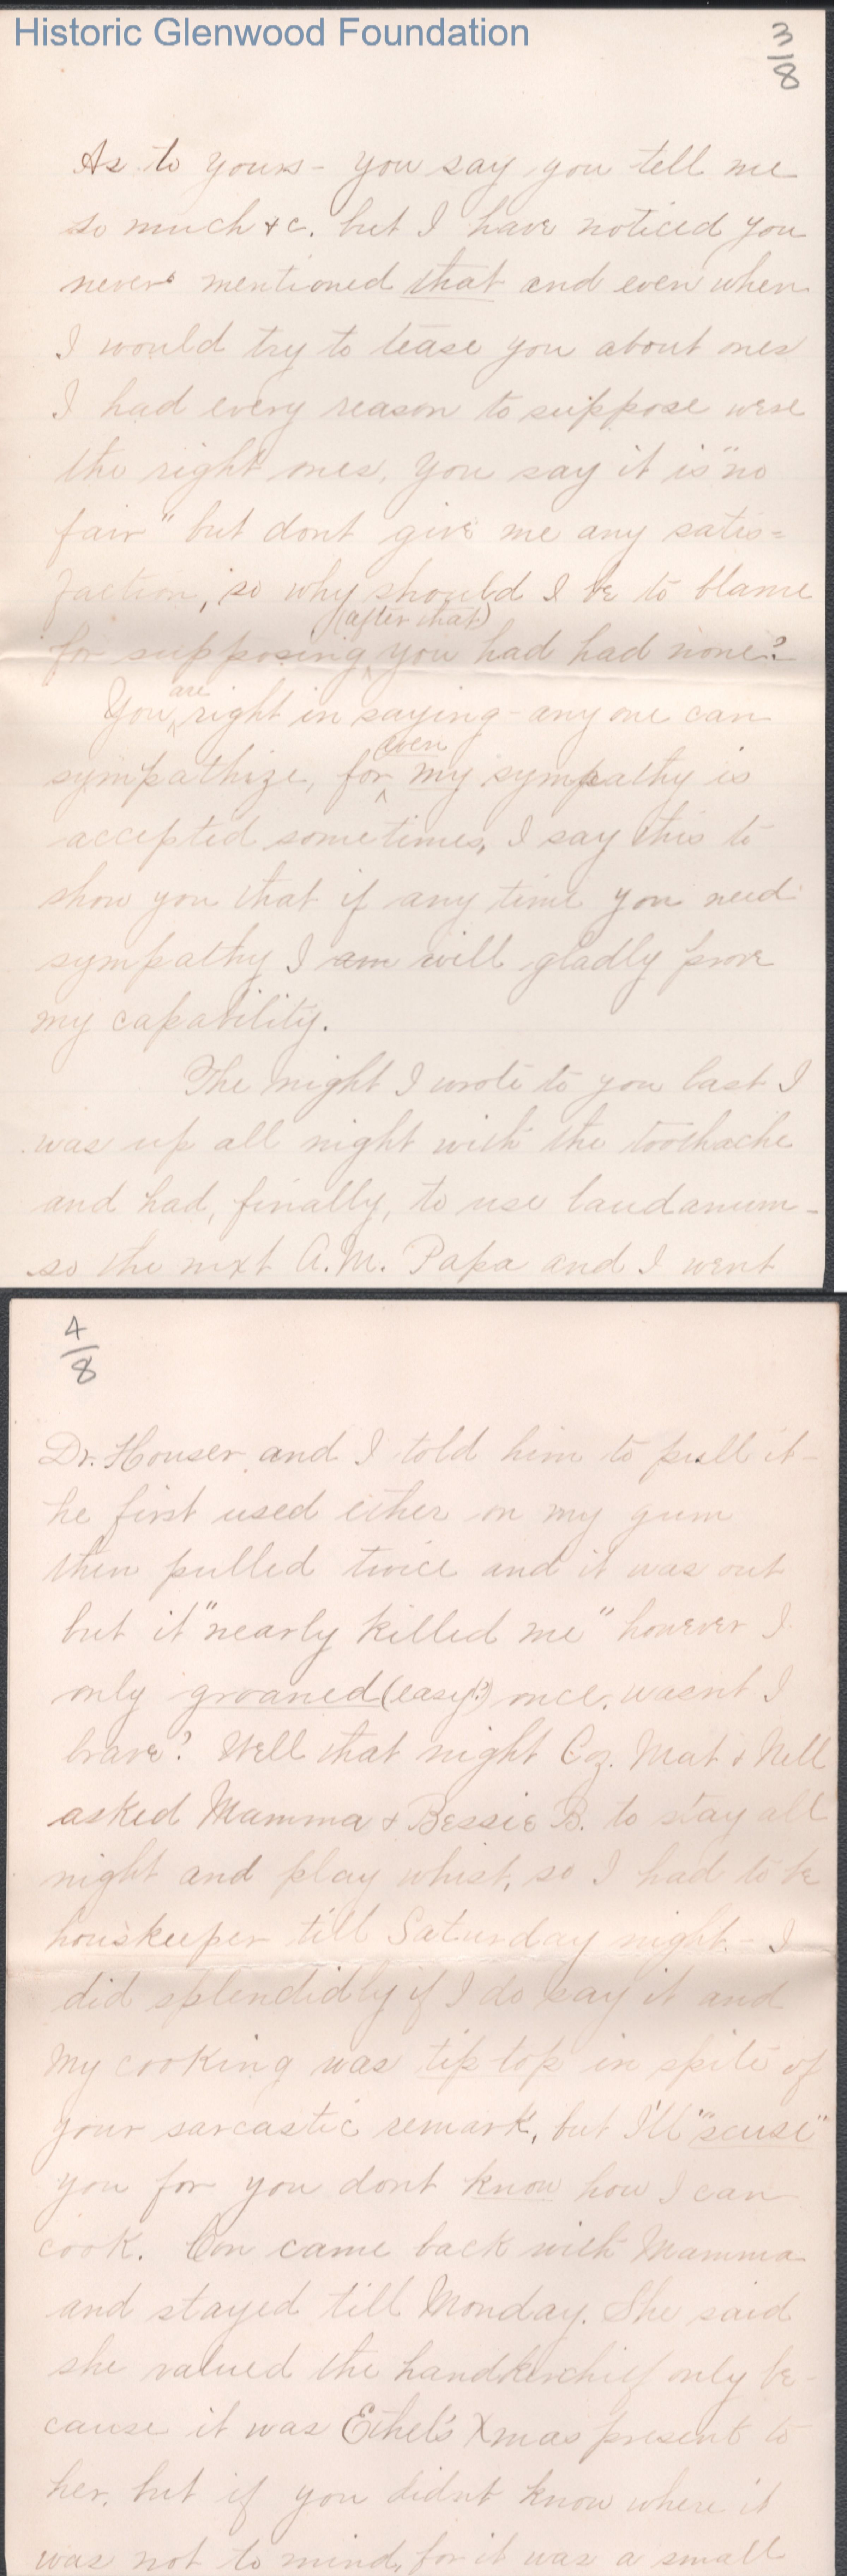 Historic Glenwood Foundation
3/8
As to yours - you say you tell me
so much & c. but I have noticed you
never mentioned that and even when
I would try to tease you about ones
I had every reason to suppose were
the right ones, you say it is "no
fair" but dont give me any satis=
faction, so why should I be to blame
(after that)
for supposing you had had none?
are
You right in saying - any one can
even
sympathize, for my sympathy is
accepted sometimes, I say this to
show you that if any time you need
sympathy I am will gladly prove
my capability.
The night I wrote to you last I
was up all night with the toothache
and had, finally, to use laudanum -
so the next A.M. Papa and I went
4/8
Dr. Houser and I told him to pull it -
he first used ether on my gum
then pulled twice and it was out
but it "nearly killed me" however I
only groaned (easy?) once. wasnt I
brave? Well that night Coz. Mat & Nell
asked Mamma & Bessie B. to stay all
night and play whist, so I had to be
houskeeper till Saturday night. - I
did splendidly if I do say it and
my cooking was tip-top in spite of
your sarcastic remark, but I'll "scuse"
you for you dont know how I can
cook. Con came back with Mamma
and stayed till Monday. She said
she valued the handkerchief only be-
cause it was Ethel's Xmas present to
her, but if you didnt know where it
was not to mind, for it was a small